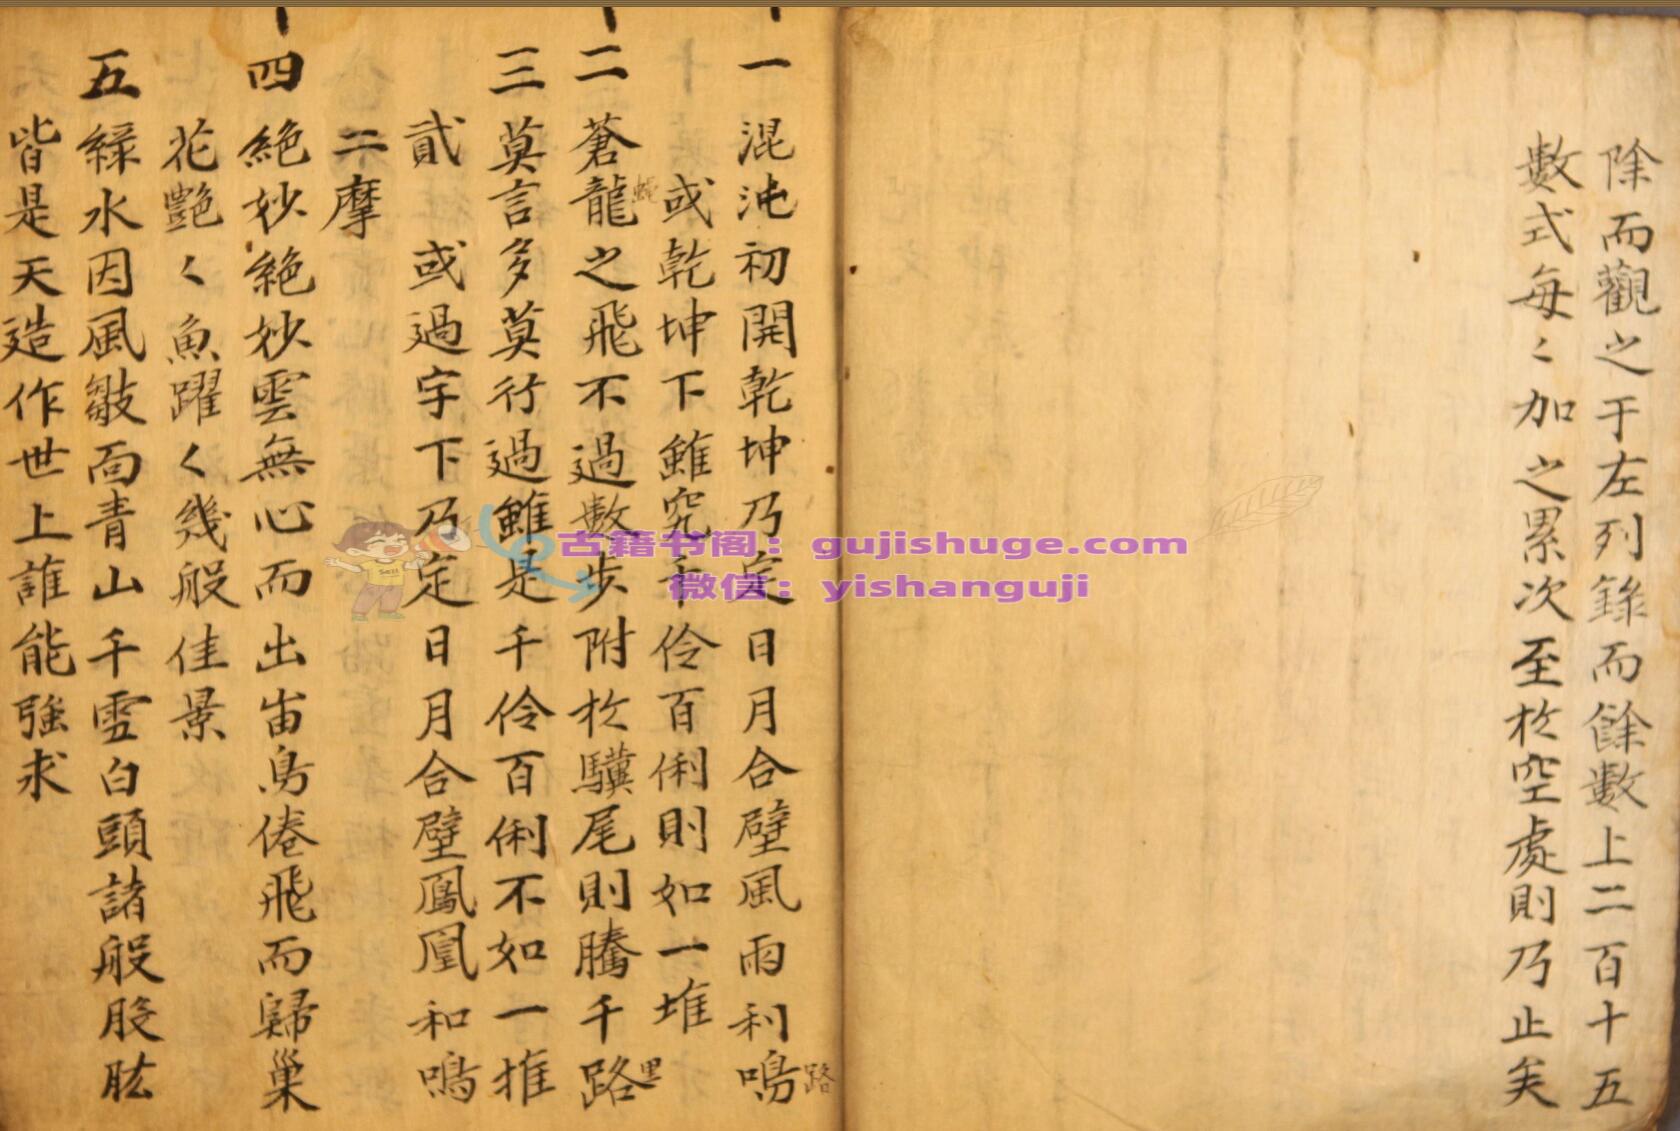 除而觀之于左列錄而餘數上二百十五
數式每〻加之累次至於空處則乃止矣
一混沌初開乾坤乃定日月合璧風雨利鳴
路
或乾坤下雖究千伶百俐則如一堆
二蒼龍之飛不過數步附於驥尾則騰千路
里
三莫言多莫行過雖是千伶百俐不如一推
貳 或過宇下乃定日月合壁鳳凰和鳴
二摩
四絕妙絕妙雲無心而出宙鳥倦飛而歸巢
花艷〱魚躍〱幾般佳景
五綠水因風皺面青山千雪白頭諸般股肱
皆是天造作世上誰能強求
古籍书阁：gujishuge.com
微信：yishanguji